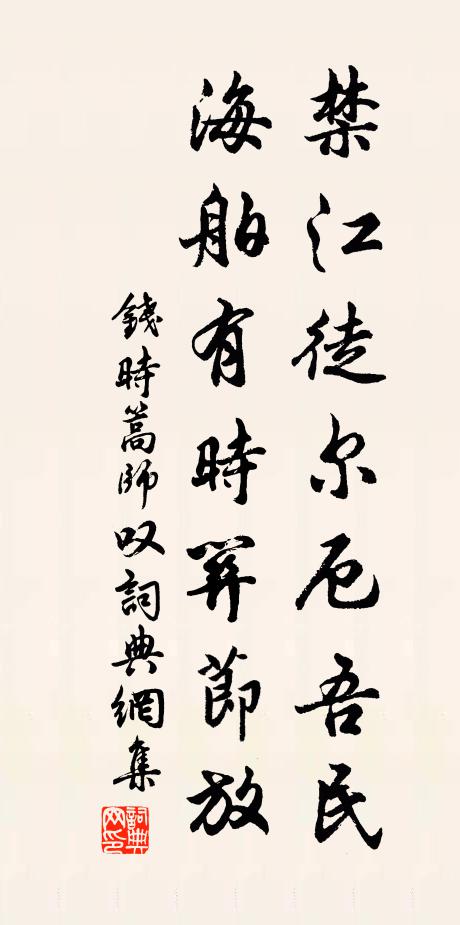 禁江徒尔厄吾民
海舶有時關節放
錢時篙師叹詞典網集
詞典网印